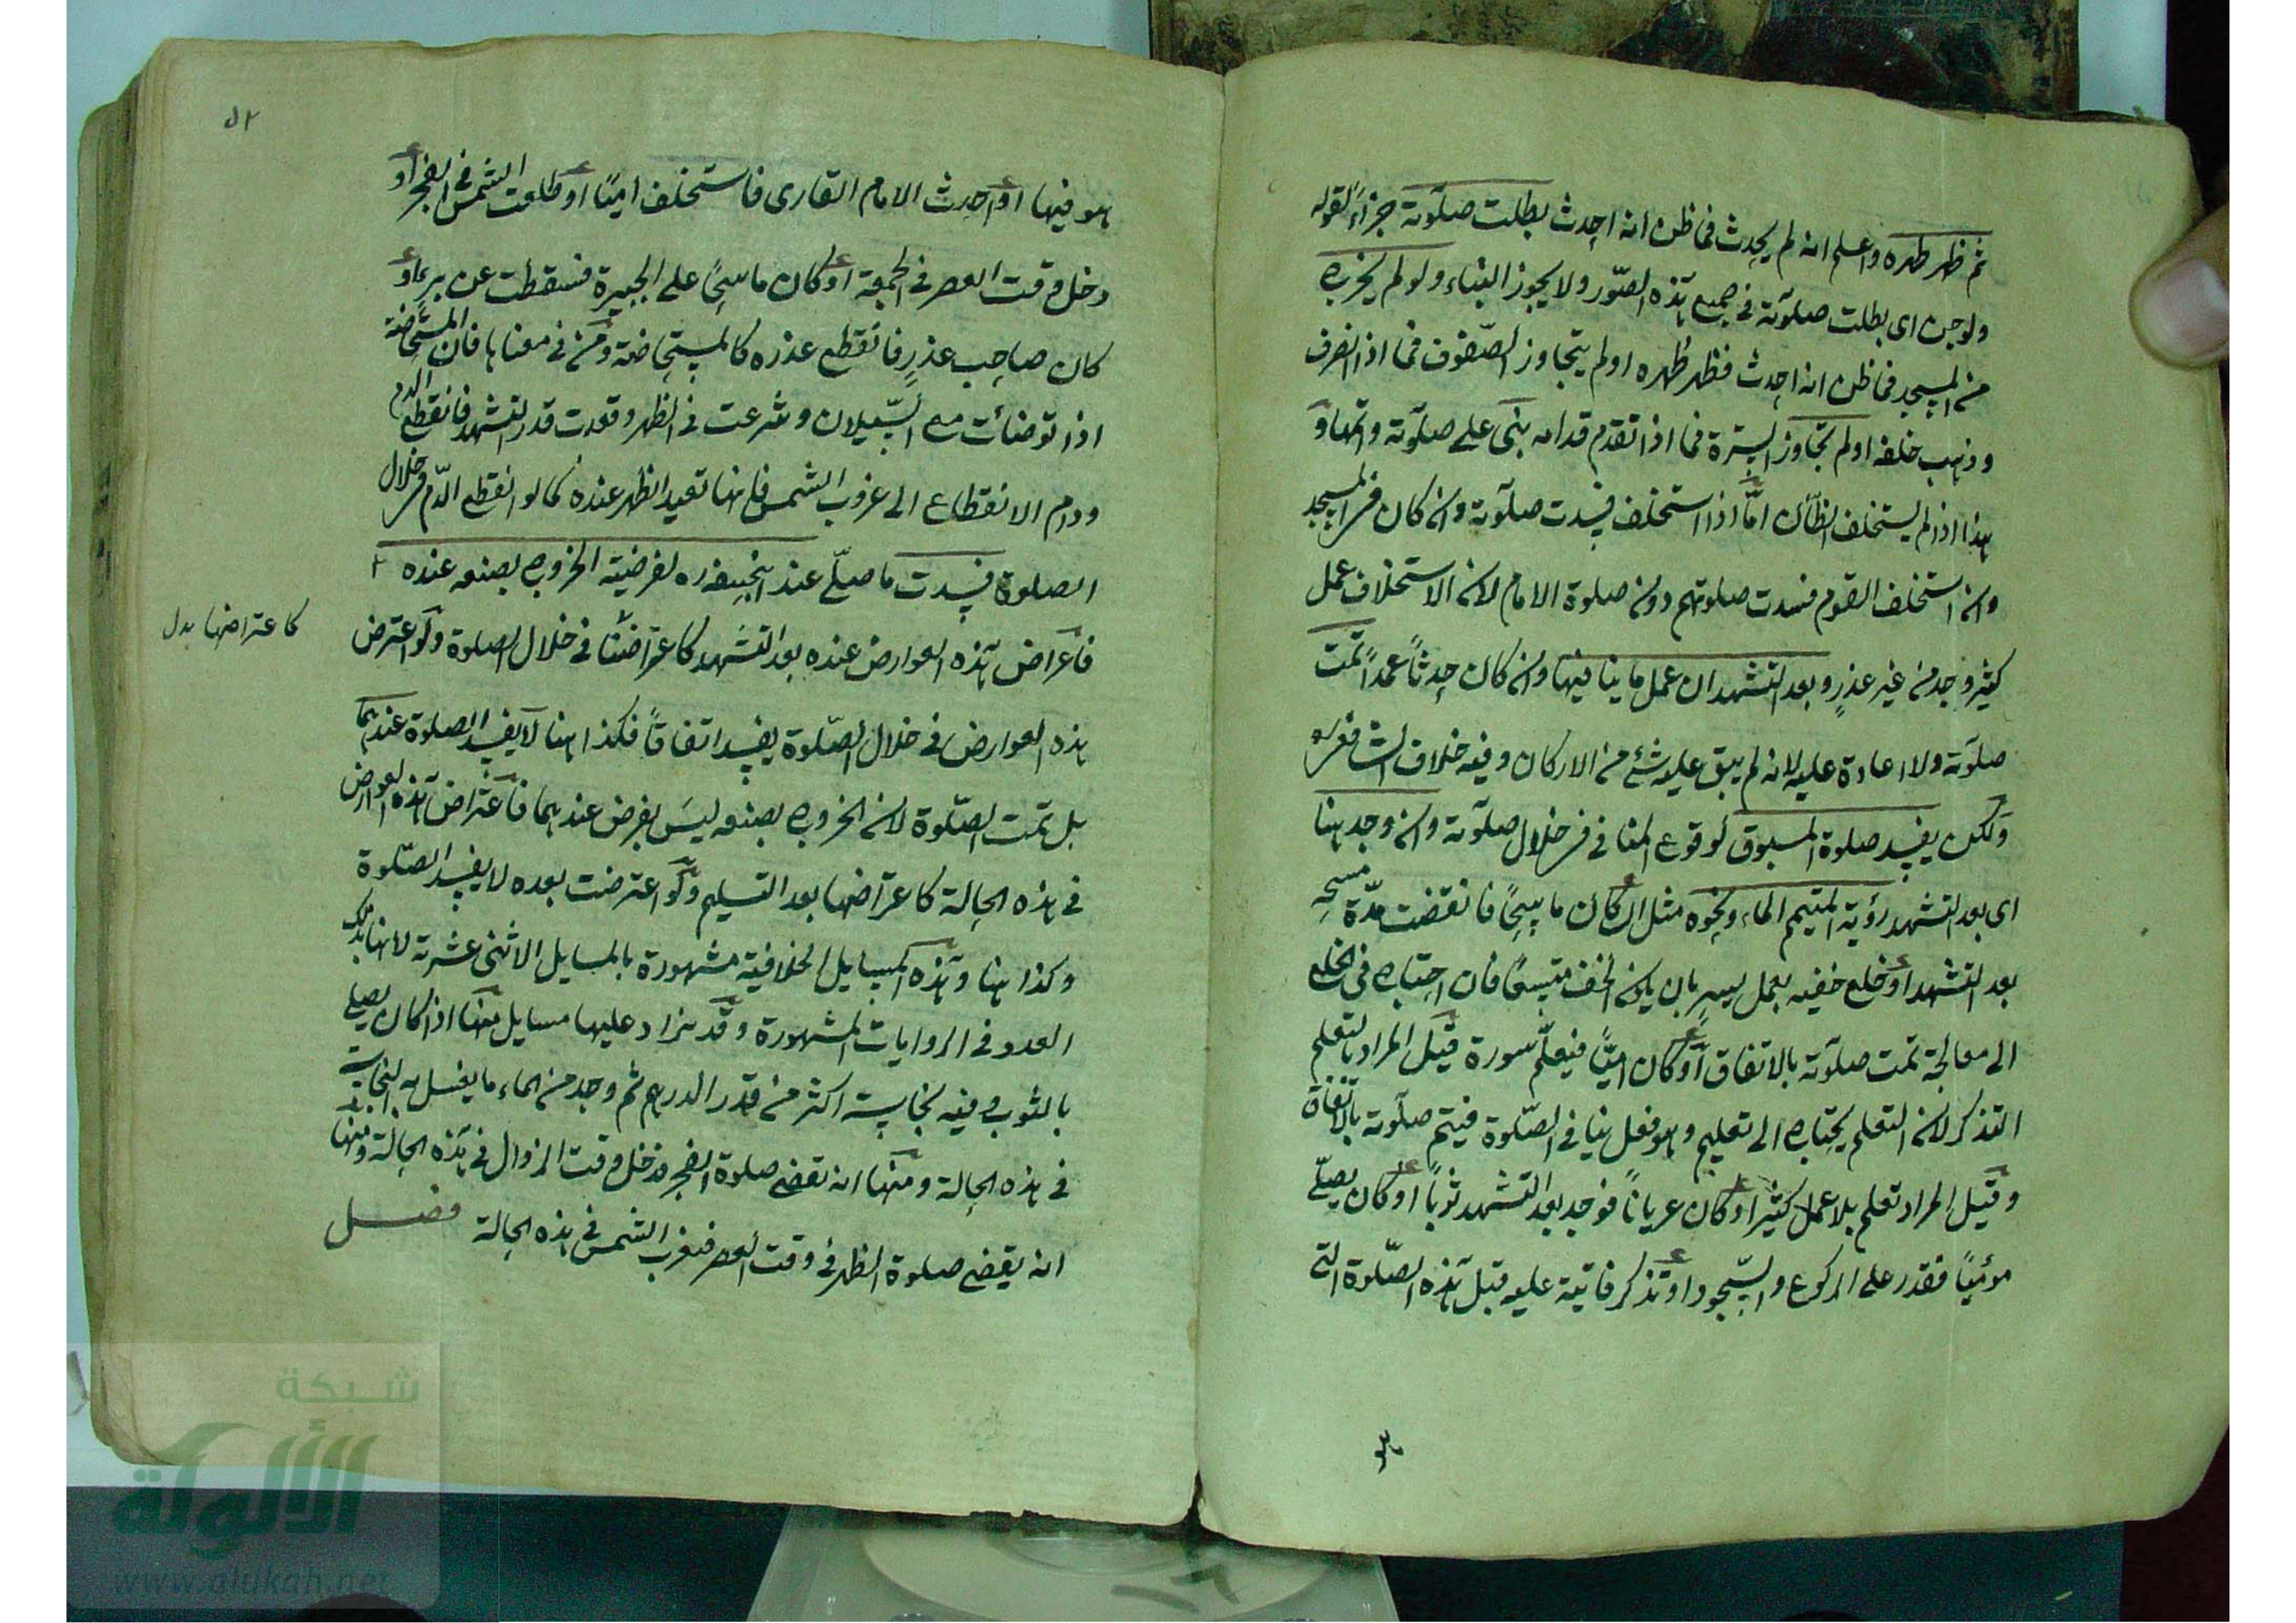 ثم ظهر طهره وعلم انه لم يحدث فيما ظن انه احدث بطلت صلوته جزاء لقوله
ولو جن اى بطلت صلوته فى جميع هذه الصّور ولا يجوز البناء ولو لم يخرج
من المسجد فيما ظن انه احدث فظهر طهره او لم يتجاوز الصّفوف فيما اذا انصرف
وذهب خلفه او لم يتجاوز السترة فيما اذا تقدم قدامه بنى على صلوته واتمها و
هذا اذا لم يستخلف الظان امّا اذا استخلف فسدت صلوته وان كان فى المسجد
وان استخلف القوم فسدت صلوتهم دون صلوة الامام لان الاستخلاف عمل
كثير وجد من غير عذرٍ وبعد التشهد ان عمل ما ينافيها وان كان حدثاً عمداً تمت
صلوته ولا اعادة عليه لانه لم يبق عليه شئ من الاركان وفيه خلاف الشافعى
ولكن يفسد صلوة المسبوق لوقوع المنافى فى خلال صلوته وان وجد هنا
اى بعد التشهد رؤية المتيمم الماء ونحوه مثل ان كان ماسحاً فانقضت مدّة مسحه
بعد التشهد او خلع خفيه بعمل يسير بان يكون الخف متسعاً فان احتاج فى الخلع
الى معالجة تمت صلوته بالاتفاق او كان اميّاً فتعلّم سورة قيل المراد بالتعلم
التذكر لان التعلم يحتاج الى تعليم وهو فعل ينافى الصّلوة فيتم صلوته بالاتفاق
وقيل المراد تعلم بلا عمل كثير او كان عرياناً فوجد بعد التشهد ثوباً او كان يصلّى
مؤمياً فقدر على الركوع والسّجود او تذكر فايتة عليه قبل هذه الصّلوة التى
هو
٥٢
هو فيها او احدث الامام القارى فاستخلف اميّاً او طلعت الشمس فى الفجر او
دخل وقت العصر فى الجمعة او كان ماسحاً على الجبيرة فسقطت عن برء او
كان صاحب عذرٍ فانقطع عذره كالمستحاضة ومن فى معناها فان المستحاضة
اذا توضأت مع السّيلان وشرعت فى الظهر وقعدت قدر التشهد فانقطع الدم
ودام الانقطاع الى غروب الشمس فانها تعيد الظهر عنده كما لو انقطع الدّم فى خلال
الصلوة فسدت ما صلّى عند ابيحنيفه ره لفرضية الخروج بصنعه عنده
فاعراض هذه العوارض عنده بعد التشهد كاعتراضنا فى خلال الصلوة ولو اعترض
كاعتراضها بدل
هذه العوارض فى خلال الصّلوة يفسد اتفاقاً فكذا هنا لا يفسد الصلوة عندهما
بل تمت الصّلوة لان الخروج بصنعه ليس بفرض عندهما فاعتراض هذه العوارض
فى هذه الحالة كاعتراضها بعد التسليم ولو اعترضت بعده لا يفسد الصّلوة
وكذا هنا وهذه المسايل الخلافية مشهورة بالمسايل الاثنى عشرية لانها بذلك
العدد فى الروايات المشهورة وقد يزاد عليها مسايل منها اذا كان يصلى
بالثوب وفيه نجاسة اكثر من قدر الدرهم ثم وجد من الماء ما يغسل به النجاسة
فى هذه الحالة ومنها انه تقضى صلوة الفجر فدخل وقت الزوال فى هذه الحالة ومنها
انه يقضى صلوة الظهر فى وقت العصر فتغرب الشمس فى هذه الحالة فصل
شبكة
الألوكة
www.alukah.net